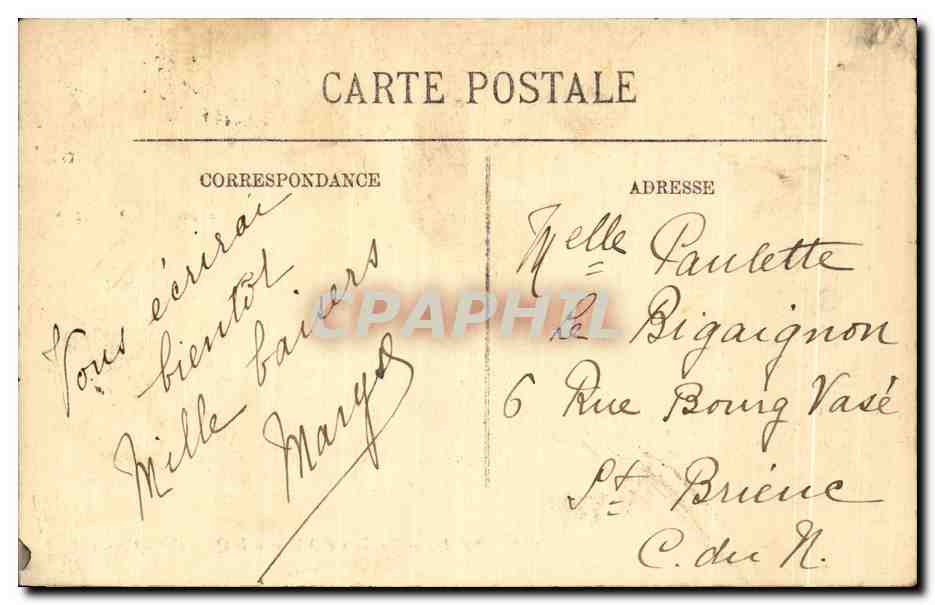 CARTE POSTALE
CORRESPONDANCE
Vous écrirai
bientôt
Mille baisers
ADRESSE
Melle Paulette
Le Bigaignon
6 Rue Bourg Vasé
St Brieuc
C. du N.
CPAPHIL